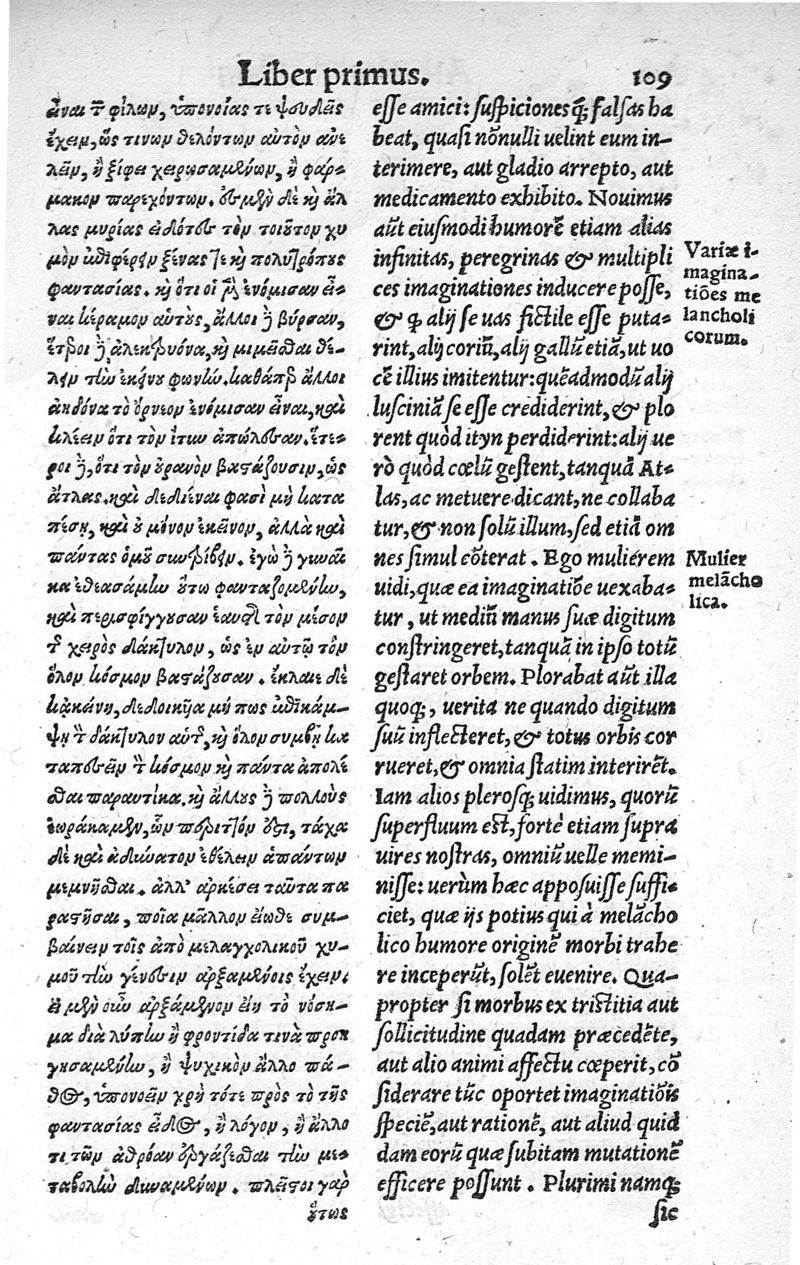 Liber primus. 109
εἶναι τ φίλων, ὑπονοίας τε ψευδεῖς
ἔχειν, ὥς τινων θελόντων αὐτὸν ἀνε
λεῖν, ἢ ξίφει χειρησαμένων, ἢ φάρ-
μακον παρεχόντων. ἴσμεν δὲ καὶ ἄλ
λας μυρίας εἰδότες τὸν τοιοῦτον χυ
μὸν ἐπιφέρειν ξένας τε καὶ πολυτρόπους
φαντασίας. καὶ ὅτι οἱ μὲν ἐνόμισαν εἶ-
ναι κέραμον αὐτοὺς, ἄλλοι δὲ βύρσαν,
ἕτεροι δὲ ἀλεκτρυόνα, καὶ μιμεῖσθαι θέ-
λειν τὴν ἐκείνου φωνήν. καθάπερ ἄλλοι
ἀηδόνα τὸ ὄρνεον ἐνόμισαν εἶναι, καὶ
κλαίειν ὅτι τὸν ἴτυν ἀπώλεσαν. ἕτε-
ροι δὲ, ὅτι τὸν οὐρανὸν βαστάζουσιν, ὡς
ἄτλας. καὶ δεδιέναι φασὶ μὴ κατα
πέσῃ, καὶ οὐ μόνον ἐκεῖνον, ἀλλὰ καὶ
πάντας ὁμοῦ συντρίβειν. ἐγὼ δὲ γυναῖ
κα ἐθεασάμην οὕτω φανταζομένην,
καὶ περισφίγγουσαν ἑαυτῆς τὸν μέσον
τ χειρὸς δάκτυλον, ὡς ἐν αὐτῷ τὸν
ὅλον κόσμον βαστάζουσαν. ἔκλαιε δὲ
κἀκείνη, δεδοικυῖα μή πως ἐπικάμ-
ψῃ τ δάκτυλον αὐτῆς, καὶ ὅλον συμβῇ κα
ταπεσεῖν τ κόσμον καὶ πάντα ἀπολέ
σθαι παραυτίκα. καὶ ἄλλους δὲ πολλοὺς
ἑωράκαμεν, ὧν περιττόν ἐστι, τάχα
δὲ καὶ ἀδύνατον ἐθέλειν ἁπάντων
μεμνῆσθαι. ἀλλ' ἀρκέσει ταῦτα πα
ρατῆσαι, ποῖα μᾶλλον εἴωθε συμ-
βαίνειν τοῖς ἀπὸ μελαγχολικοῦ χυ-
μοῦ τὴν γένεσιν ἀρξαμένοις ἔχειν.
εἰ μὲν οὖν ἀρξάμενον εἴη τὸ νόση-
μα διὰ λύπην ἢ φροντίδα τινὰ προη
γησαμένην, ἢ ψυχικὸν ἄλλο πά-
θος, ὑπονοεῖν χρὴ τότε πρὸς τὸ τῆς
φαντασίας εἶδος, ἢ λόγον, ἢ ἄλλο
τι τῶν ἀθρόαν ἐργάζεσθαι τὴν με-
ταβολὴν δυναμένων. πλεῖστοι γὰρ
οὕτως
esse amici: suspiciones q; falsas ha
beat, quasi nõnulli uelint eum in-
terimere, aut gladio arrepto, aut
medicamento exhibito. Nouimus
aũt eiusmodi humorẽ etiam alias
infinitas, peregrinas & multipli
ces imaginationes inducere posse,
& q̃ alij se uas fictile esse puta-
rint, alij coriũ, alij gallũ etiã, ut uo
cẽ illius imitentur: quẽadmodũ alij
lusciniã se esse crediderint, & plo
rent quòd ityn perdiderint: alij ue
rò quòd cœlũ gestent, tanquã At-
las, ac metuere dicant, ne collaba
tur, & non solũ illum, sed etiã om
nes simul cõterat. Ego mulierem
uidi, quæ ea imaginatiõe uexaba-
tur, ut mediũ manus suæ digitum
constringeret, tanquã in ipso totũ
gestaret orbem. Plorabat aũt illa
quoq;, uerita ne quando digitum
suũ inflecteret, & totus orbis cor
rueret, & omnia statim interirẽt.
Iam alios plerosq; uidimus, quorũ
superfluum est, fortè etiam supra
uires nostras, omniũ uelle memi-
nisse: uerùm hæc apposuisse suffi-
ciet, quæ ijs potius qui à melãcho
lico humore originẽ morbi trahe
re inceperũt, solẽt euenire. Qua-
propter si morbus ex tristitia aut
sollicitudine quadam præcedẽte,
aut alio animi affectu cœperit, cõ
siderare tũc oportet imaginatiõis
speciẽ, aut rationẽ, aut aliud quid
dam eorũ quæ subitam mutationẽ
efficere possunt. Plurimi namq;
sic
Variæ i-
magina-
tiões me
lancholi
corum.
Mulier
melãcho
lica.